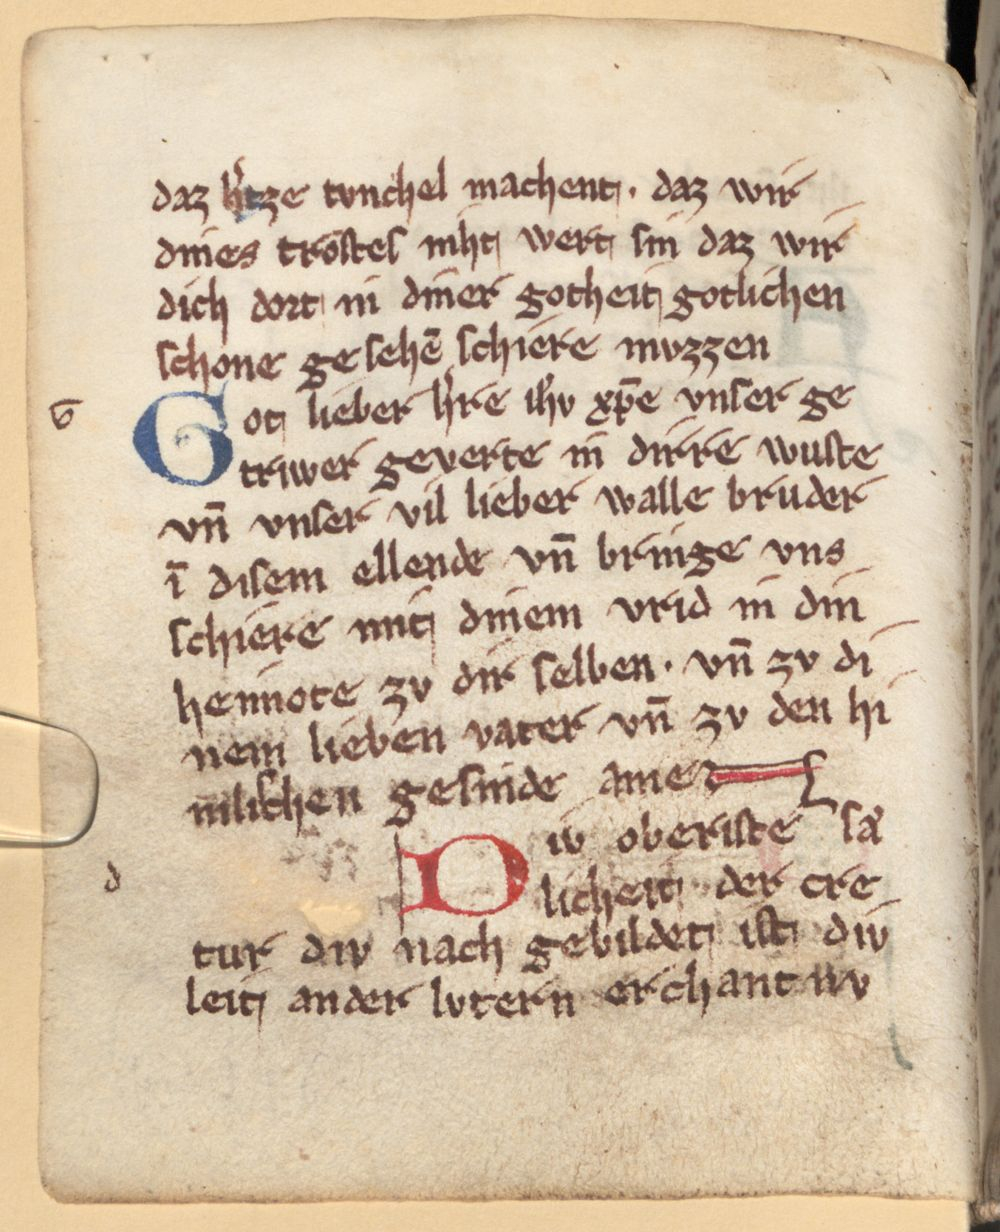 daz h'tze tvnchel machent · daz wir
dines trostes niht wert sin daz wir
dich dort in diner gotheit gotlichen
schone gesehē schiere mvzzen
Got lieber h're ih'v xp̄e vnser ge
triwer geverte in dirre wuste
vn̄ vnser vil lieber walle bruder
ī disem ellende vn̄ bringe vns
schiere mit dinem vrid in din
heimote zv dir selben · vn̄ zv di
nem lieben vater vn̄ zv den hi
milischen gesinde ame
Div oberiste sa
licheit der cre
tur div nach gebildet ist div
leit an der lvtern erchantnv